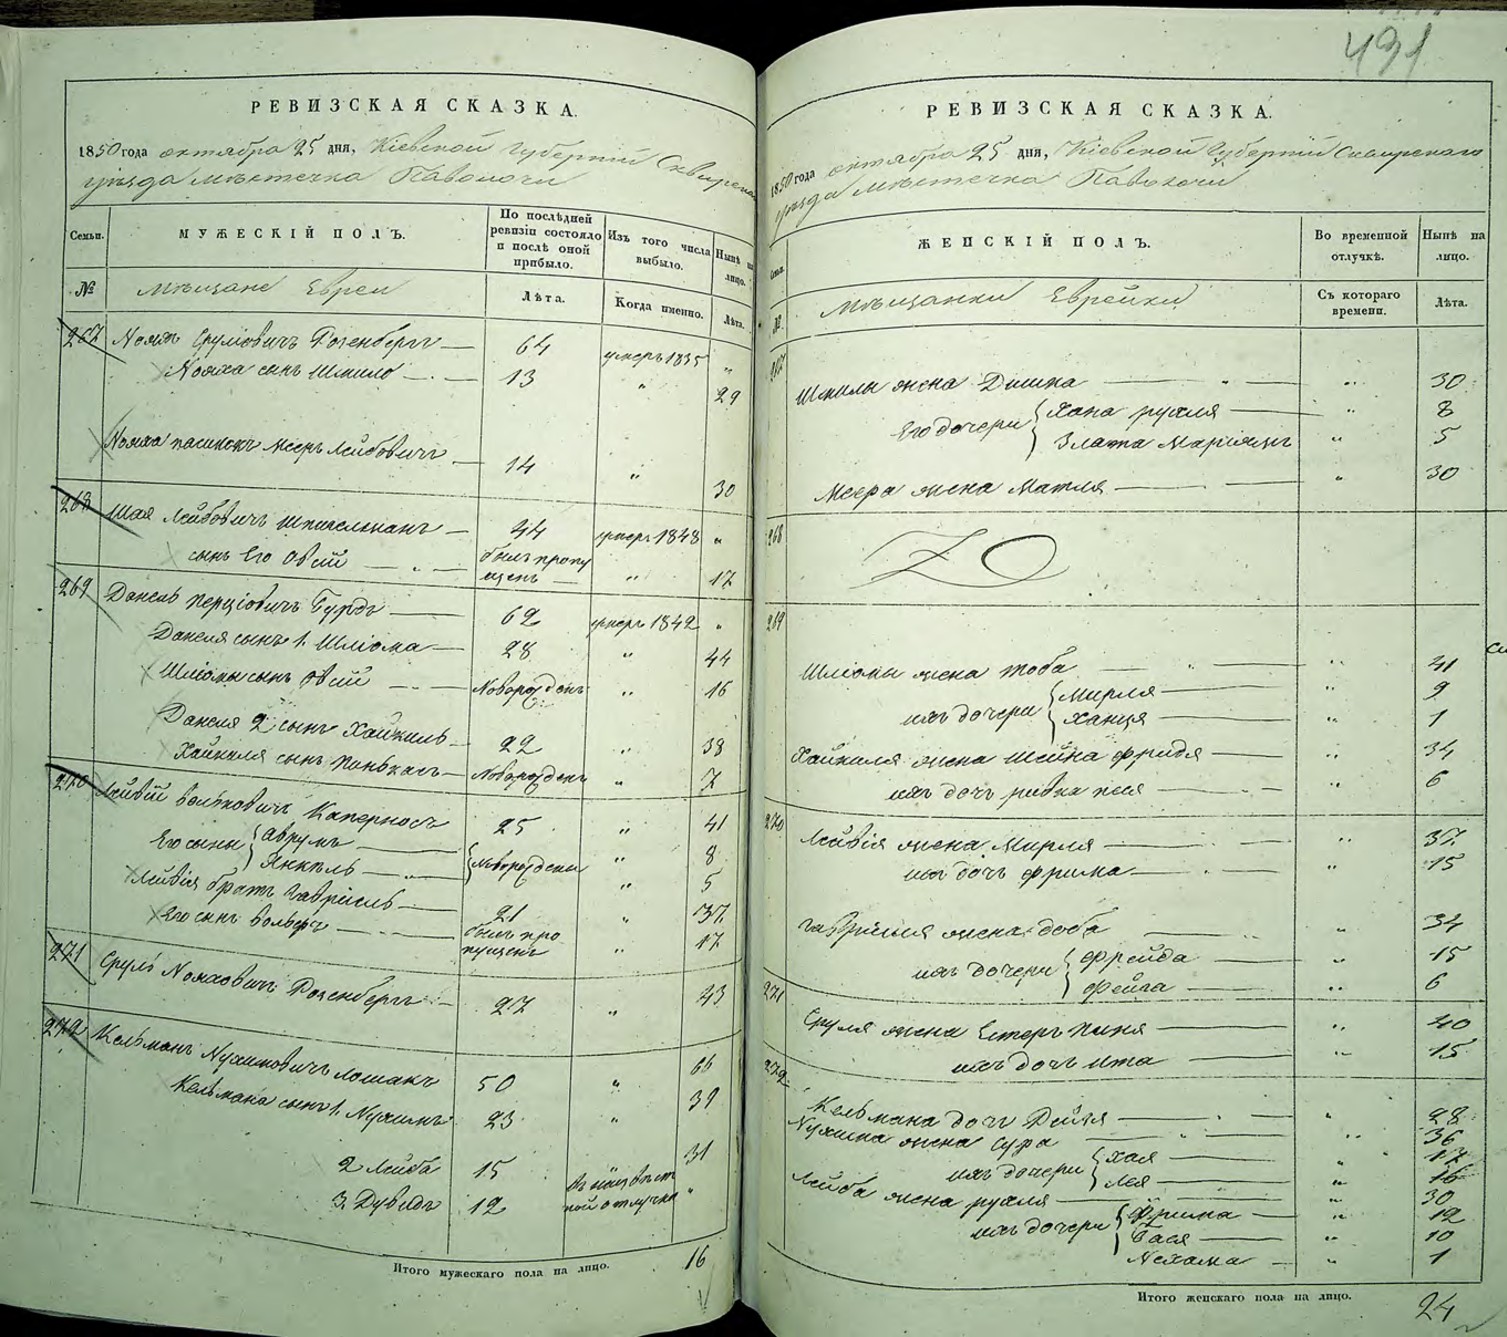 491
РЕВИЗСКАЯ СКАЗКА.
1850 года октября 25 дня, Кіевской Губерніи Сквирскаго
уѣзда мѣстечка Паволочи
Семьи.
МУЖЕСКІЙ ПОЛЪ.
По послѣдней ревизіи состояло и послѣ оной прибыло.
Изъ того числа выбыло.
Нынѣ на лицо.
№
Мѣщане Евреи
Лѣта.
Когда именно.
Лѣта.
267 Срулiовичъ Розенбергъ — 64 умеръ 1835 „
сынъ Шмило — „ — 13 „ 29
пасынокъ Мееръ Лейбовичъ — 14 „ 30
268 Шая Лейбовичъ — 44 умеръ 1848 „
сынъ Его Овсій — „ — былъ пропущенъ — „ 17
269 Данель — 62 умеръ 1842 „
Данеля сынъ 1. Шліома — 28 „ 44
Шліомы сынъ Овсій — „ — Новорожденъ „ 16
Данеля 2 сынъ Хайкиль — 22 „ 38
Хайкиля сынъ Пинькасъ — Новорожденъ „ 7
270 Лейвій Вольковичъ Каперносъ 25 „ 41
Его сыны { Аврумъ — „ 8
Янкель — „ { Новорождены „ 5
Лейвія братъ Гаврiиль — 21 „ 37
Его сынъ Вольфъ — „ — былъ пропущенъ „ 17
271 Сруль Розенбергъ — 27 „ 43
272 Кельманъ Нухимовичъ Лошакъ 50 „ 66
Кельмана сынъ 1. Нухимъ 23 „ 39
2 Лейба 15 31
3. Дувидъ 12 въ отлучкѣ „
Итого мужескаго пола на лицо. 16
РЕВИЗСКАЯ СКАЗКА.
1850 года октября 25 дня, Кіевской Губерніи Сквирскаго
уѣзда мѣстечка Паволочи
Семьи.
ЖЕНСКІЙ ПОЛЪ.
Во временной отлучкѣ.
Нынѣ на лицо.
№
Мѣщанки Еврейки
Съ котораго времени.
Лѣта.
267
Шмилы жена Дишка — „ — „ 30
Его дочери { Хана Рухля — „ 8
Злата Маріямъ „ 5
Меера жена Матля — „ 30
268
269
Шліомы жена Тоба — „ — „ 41
ихъ дочери { Мирля — „ 9
Ханця — „ 1
Хайкиля жена Шейна Фридя — „ 34
ихъ дочь Ривка — „ 6
270
Лейвія жена Мирля — „ 37
ихъ дочь Фрима — „ 15
Гаврiиля жена Доба — „ 34
ихъ дочери { Фрейда — „ 15
Фейга — „ 6
271
Сруля жена Естеръ — „ 40
ихъ дочь Ита — „ 15
272
Кельмана дочь — „ 28
Нухима жена Сура — „ 36
ихъ дочери { Хая — „ 17
Лея — „ 16
Лейба жена Рухля — „ 30
ихъ дочери { Фрима — „ 12
Бася — „ 10
Нехама — „ 1
Итого женскаго пола на лицо. 24